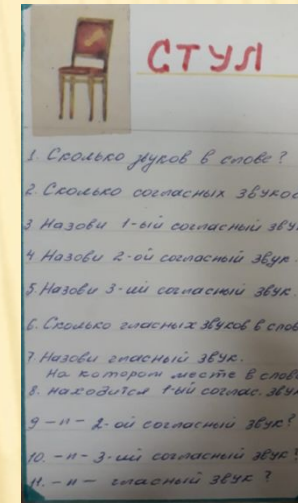 СТУЛ
1. Сколько звуков в слове?
2. Сколько согласных звуков
3. Назови 1-ый согласный зву
4. Назови 2-ой согласный звук.
5. Назови 3-ий согласный звук.
6. Сколько гласных звуков в слов
7. Назови гласный звук.
На котором месте в слове
8. находится 1-ый соглас. звук
9 -п- 2-ой согласный звук?
10. -п- 3-ий согласный звук?
11. -п- гласный звук?